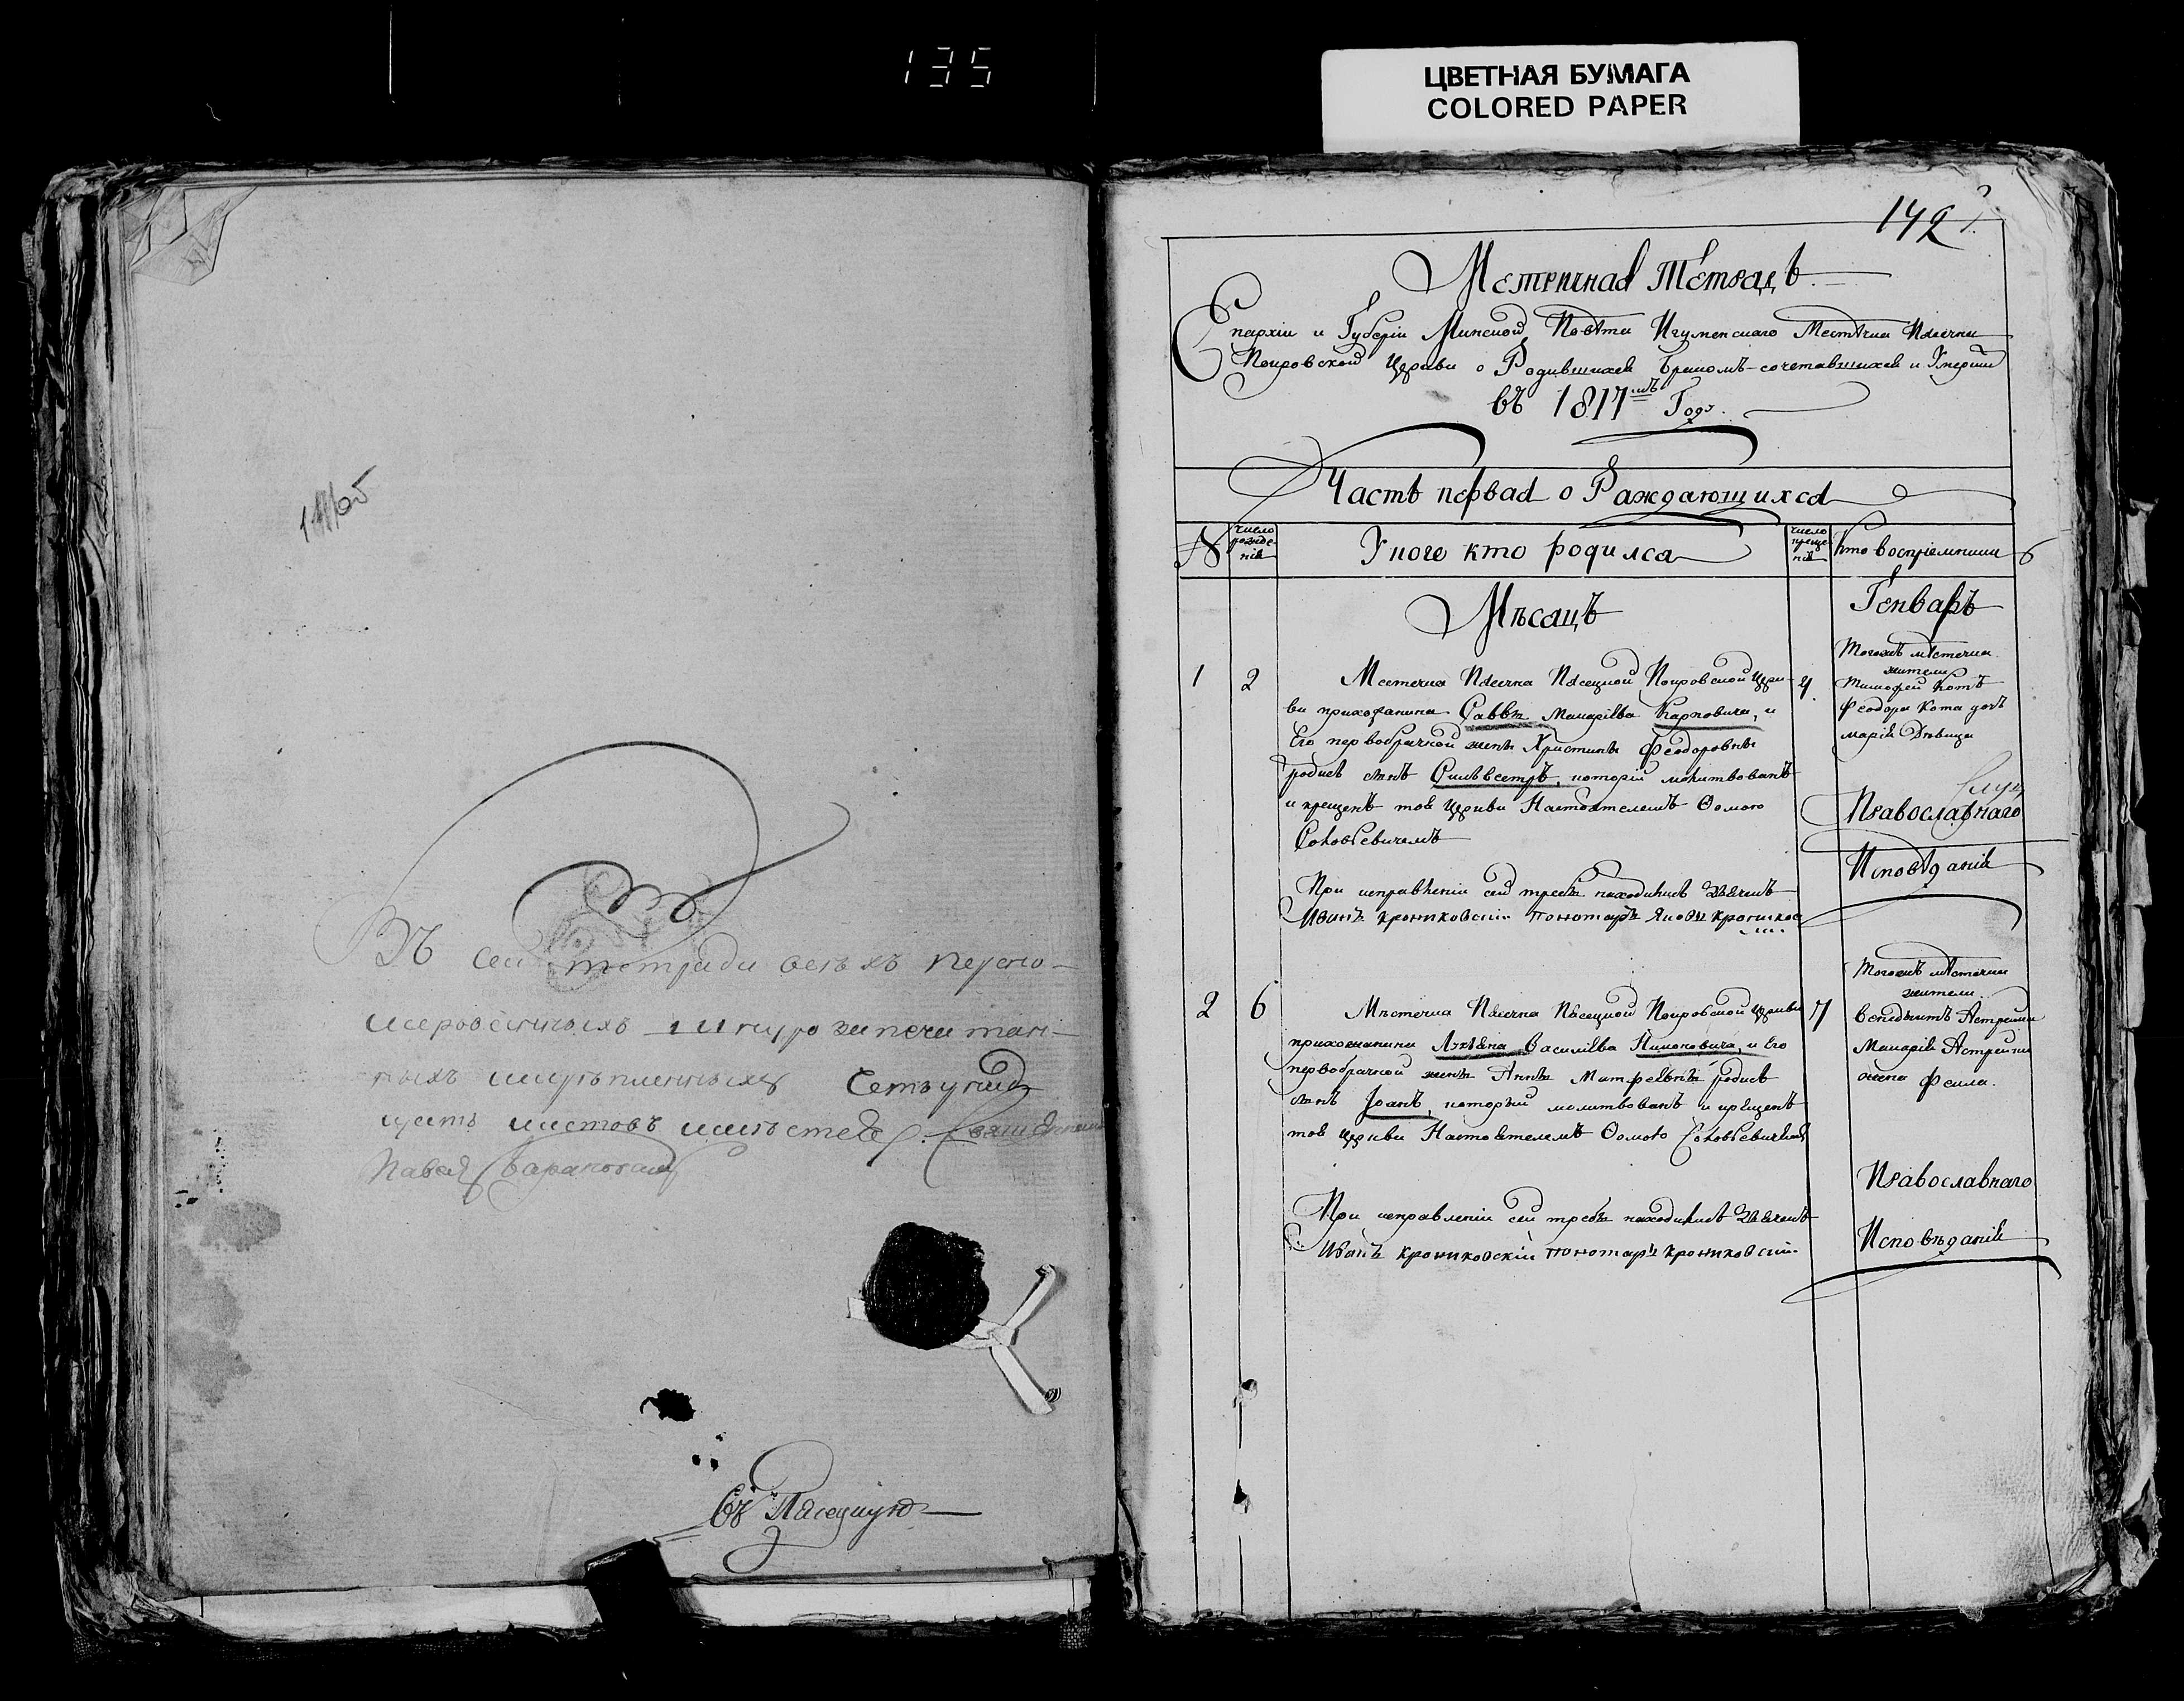 135
ЦВЕТНАЯ БУМАГА
COLORED PAPER
Въ сей тетради всехъ перено-
мерованныхъ шнурозапечатан-
ныхъ
листовъ
Павелъ Барановский
Въ Пасецкую
142
Метричная Тетрадь
Епархіи и Губерніи Минской Повѣта Игуменскаго Местѣчка Пясечна
Покровской Церкви о Родившихся Бракомъ-сочетавшихся и Умерши
въ 1817мъ Годѣ.
Часть первая о Раждающихся
№
число рожде-нія
У кого кто родился
число креще-нія
кто воспріемники
Мѣсацъ
Генваръ
1
2
Местечка Пясечна Пясецкой Покровской Церк-
ви прихожанина Саввы Макаріева Карповича, и
Его первобрачной жены Христины Феодоровны
родися сынъ Сильвестръ, которій молитвованъ
и крещенъ тоя Церкви Настоятелемъ Ѳомою
Соловьевичемъ
При исправленіи сей требы находились дьячекъ
Иванъ Крониковскій пономарь Яковъ
4.
Тогожъ мѣстечка
жители
Тимофей Котъ
Феодора Кота дочь
марія дѣвица
Православнаго
Исповѣданія
2
6
Мѣстечка Пясечна Пясецкой Покровской Церкви
прихожанина Василіева Климовича, и Его
первобрачной жены Анны Матфеевны родися
сынъ Іоанъ, который молитвованъ и крещенъ
тоя Церкви Настоятелемъ Ѳомою Соловьевичемъ
При исправленіи сей требы находились дьячекъ
Иванъ Крониковскій пономарь Крониковскій
7
Тогожъ мѣстечка
жители
Астрейки
Макарія Астрейки
жена Фекла.
Православнаго
Исповѣданія